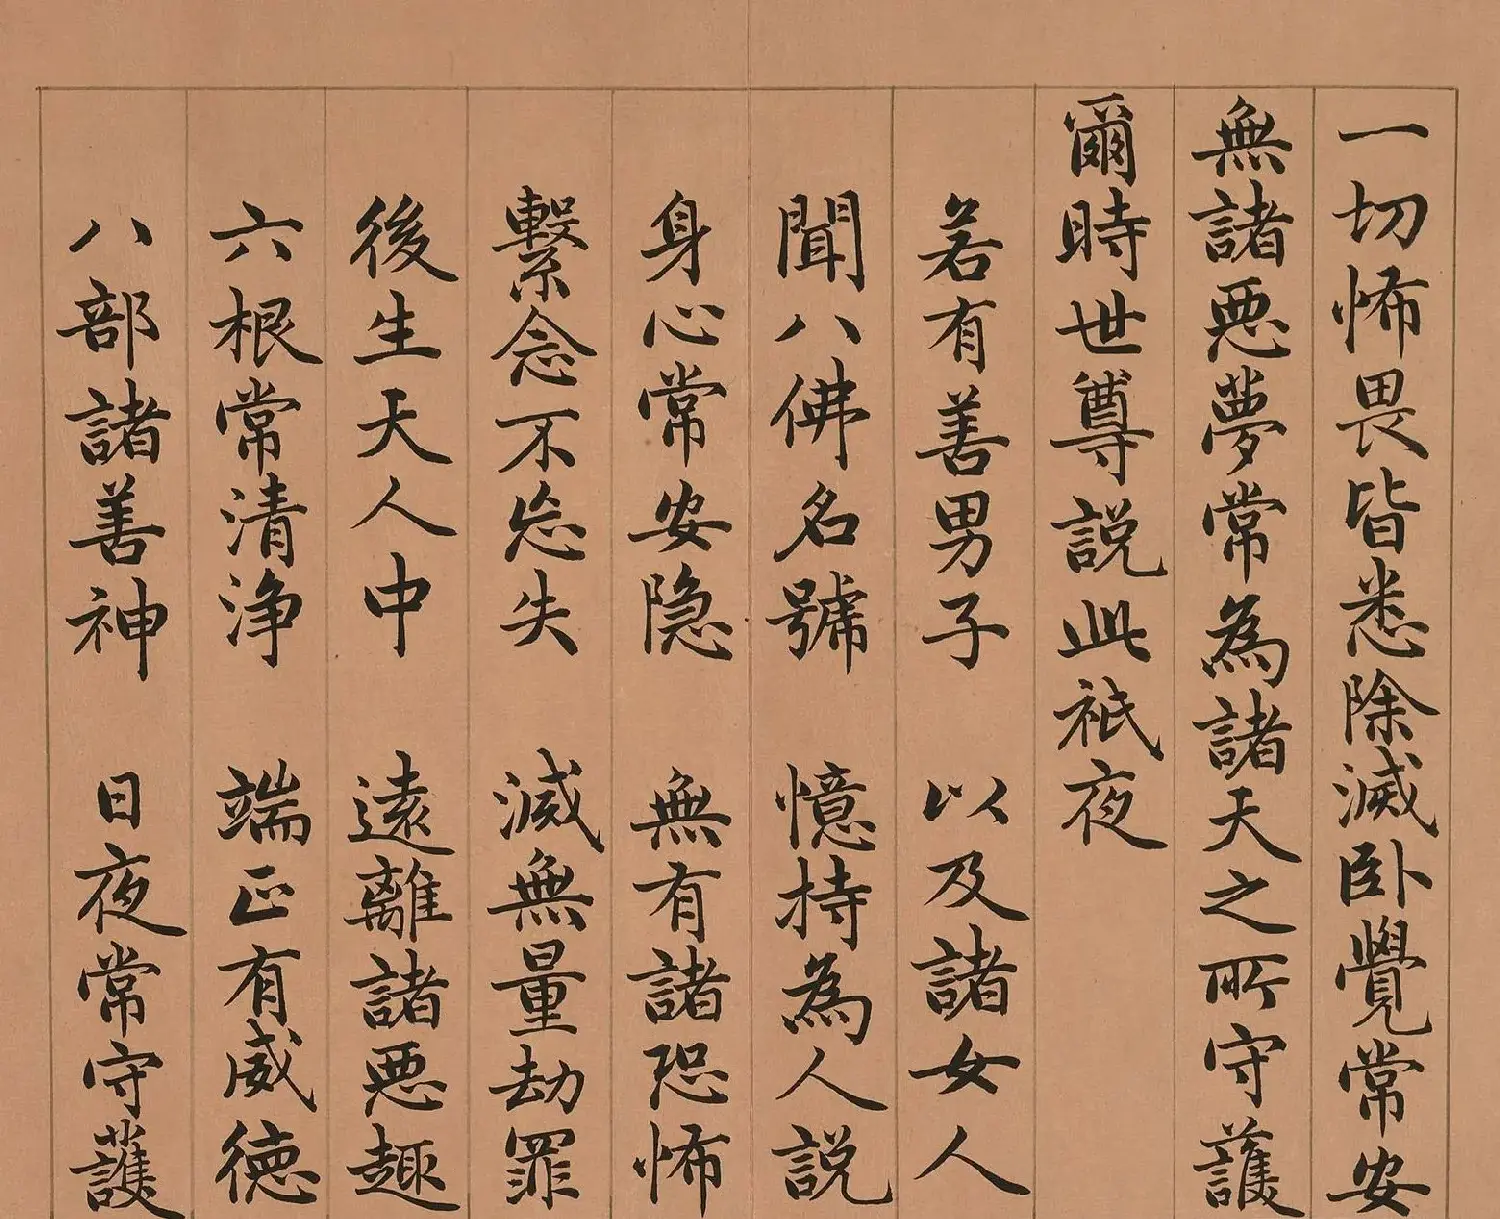 一切怖畏皆悉除滅卧覺常安
無諸惡夢常為諸天之所守護
爾時世尊説此祇夜
若有善男子 以及諸女人
聞八佛名號 憶持為人説
身心常安隐 無有諸恐怖
繫念不忘失 滅無量劫罪
後生天人中 遠離諸惡趣
六根常清浄 端正有威德
八部諸善神 日夜常守護